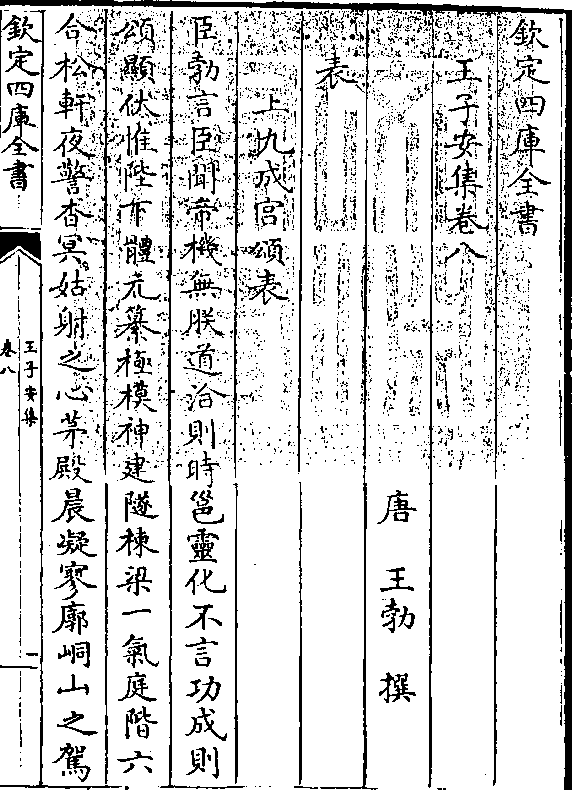 欽定四庫全書
王子安集卷八
唐 王勃 撰
表
上九成宮頌表
臣勃言臣聞帝機無朕道洽則時邕靈化不言功成則
頌顯伏惟陛下體元纂極模神建隧棟梁一氣庭階六
合松軒夜警杳冥姑射之心茅殿晨凝寥廓峒山之駕
欽定四庫全書
王子安集
卷八
一